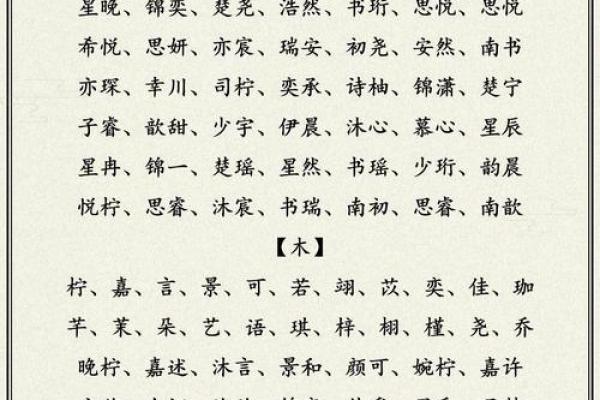 星晚、锦奕、楚尧、浩然、书珩、思悦、思悦
希悦、思妍、亦宸、瑞安、初尧、安然、南书
亦琛、幸川、司柠、奕承、诗柚、锦潇、楚宁
子睿、歆甜、少宇、伊晨、沐心、慕心、星辰
星冉、锦一、楚瑶、星然、书瑶、少珩、韵晨
悦柠、思睿、沐宸、书瑞、南初、思睿、南歆
【木】
柠、嘉、言、景、可、若、翊、苡、奕、佳、珈
芊、茉、朵、艺、语、琪、梓、栩、槿、尧、乔
晚柠、嘉述、沐言、景和、颜可、婉柠、嘉许